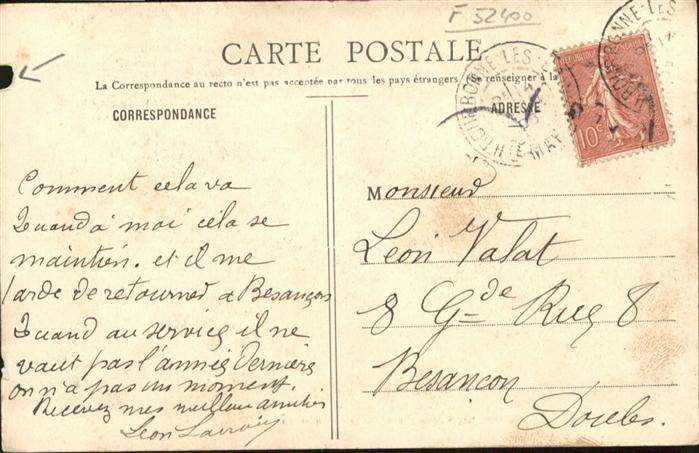 F 52400
CARTE POSTALE
La Correspondance au recto n'est pas acceptée par tous les pays étrangers (Se renseigner à la
CORRESPONDANCE
ADRESSE
BONNE-LES-
HTE MAR
10c
Comment cela va
Quand à moi cela se
maintien. et il me
tarde de retourner a Besançon
Quand au service il ne
vaut pas l'année dernière
on n'a pas un moment.
Recevez mes meilleur amitiés
Léon
Monsieur
Léon Valat
8 Gde Rue 8
Besançon
Doubs.